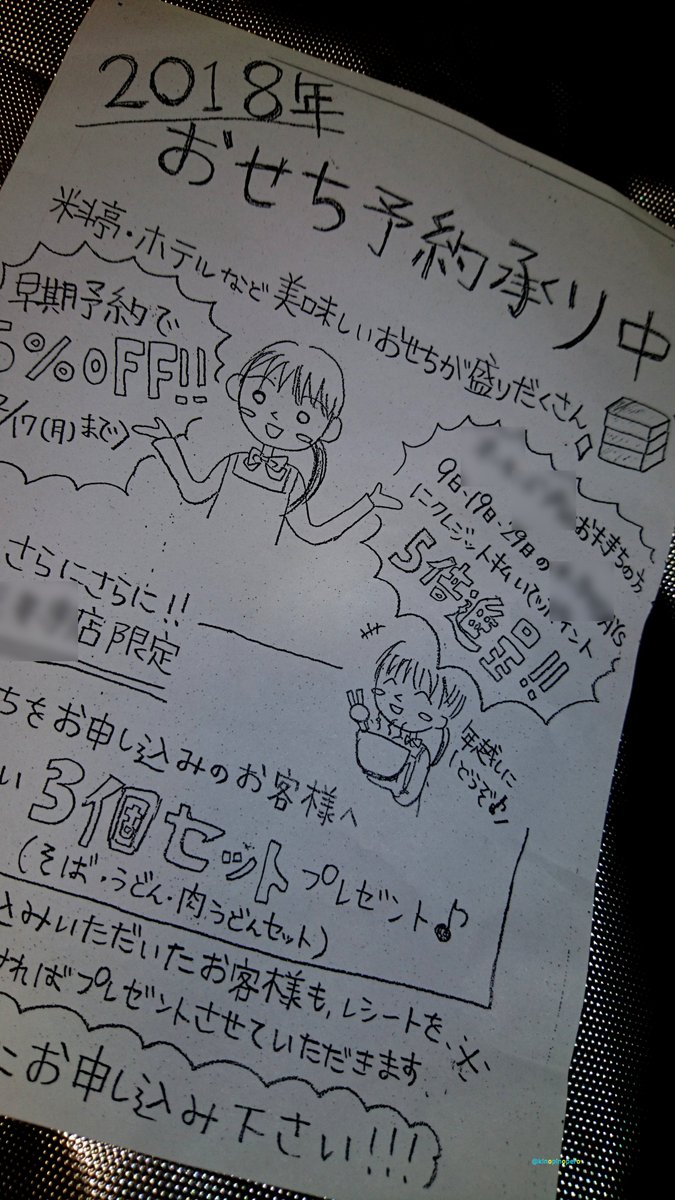 2018年
おせち予約承り中
料亭・ホテルなど美味しいおせちが盛りだくさん
早期予約で
5%OFF!!
/17(月)まで
お持ちの方
9日・19日・29日の
にクレジット払いでポイント
5倍進呈!!
さらにさらに!!
店限定
年越しに
どうぞ♪
ちをお申し込みのお客様へ
い3個セットプレゼント♪
(そば・うどん・肉うどんセット)
込みいただいたお客様も,レシートを、
ければプレゼントさせていただきます
にお申し込み下さい!!!
@kinopinopero